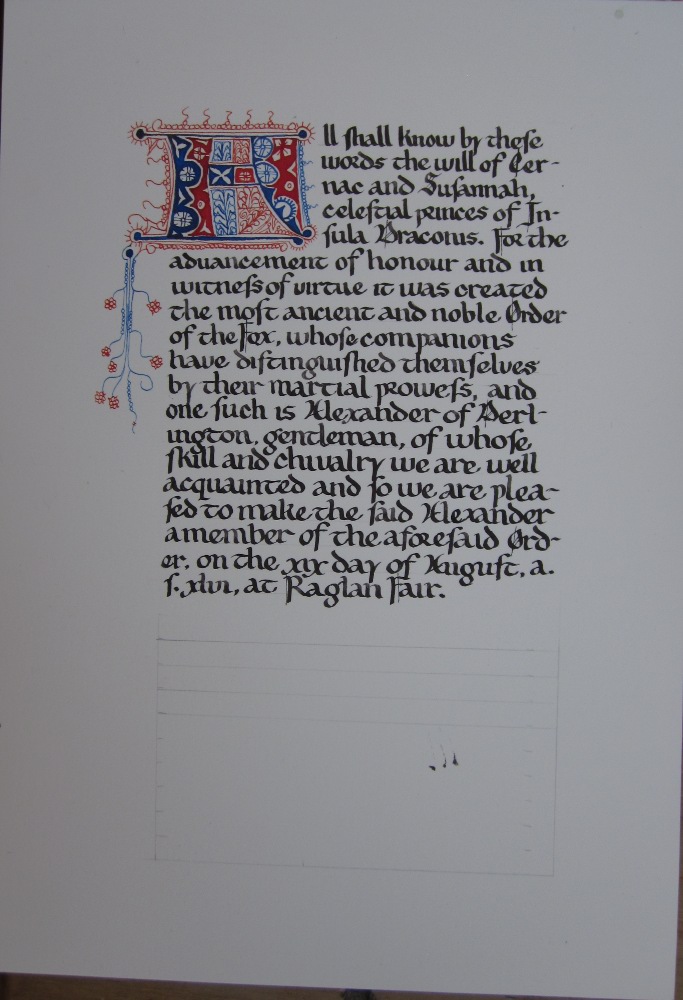 All shall know by these
words the will of Cer-
nac and Susannah,
celestial princes of In-
sula Draconis. For the
advancement of honour and in
witness of virtue it was created
the most ancient and noble Order
of the Fox, whose companions
have distinguished themselves
by their martial prowess, and
one such is Alexander of Derl-
ington, gentleman, of whose
skill and chivalry we are well
acquainted and so we are plea-
sed to make the said Alexander
a member of the aforesaid Ord-
er, on the xix day of August, a.
s. xlvi, at Raglan Fair.